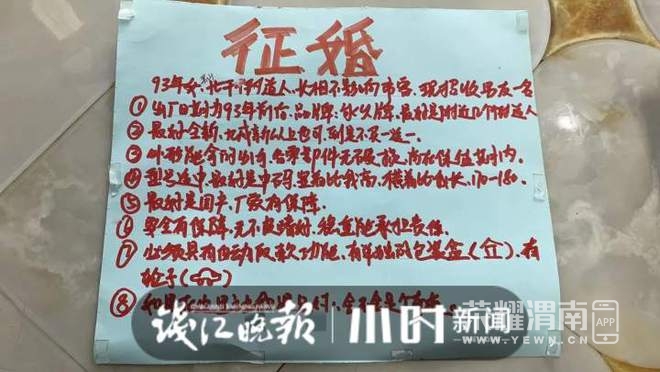 征婚
93年女,北干街道人,长相不影响市容,现招收男友一名
① 出厂日期为93年前后,品牌:杂牌,最好是附近几个街道人
② 最好全新,九成新以上也可,但是不买一送一。
③ 外形能拿的出手,各零部件无破损,尚在保值期内
④ 型号适中,最好是中码,竖着比我高,横着比我长,170-180.
⑤ 最好是国产,厂家有保障.
⑥ 安全有保障,无不良嗜好,稳重能承担责任.
⑦ 必须具有自动取款功能,有单独的包装盒(),有
轮子()
⑧
钱江晚报 小时新闻
荣耀渭南 APP
WWW.YEWN.CN